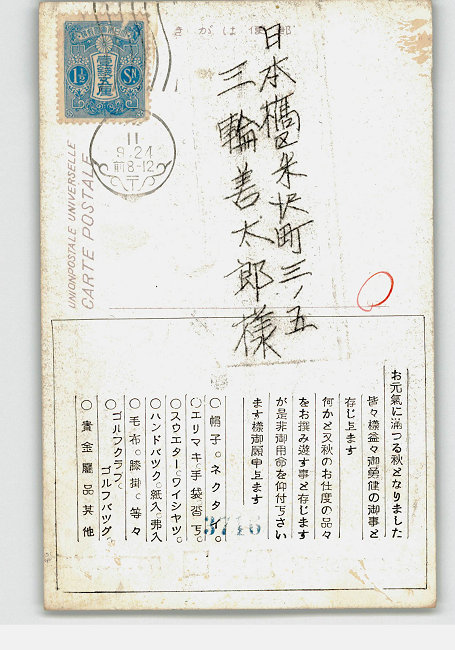 きがは便郵
1½ Sn
壹錢五厘
11
9.24
前8-12
〒
UNION POSTALE UNIVERSELLE
CARTE POSTALE
日本橋区米沢町三ノ五
三輪善太郎様
お元氣に滿つる秋となりました
皆々樣益々御勇健の御事と
存じ上ます
何かと又秋のお仕度の品々
をお撰み遊す事と存じます
が是非御用命を仰付下さい
ます樣御願申上ます
○帽子。ネクタイ。
○エリマキ。手袋
○スウエター。ワイシヤツ。
○ハンドバツク。紙入。
○毛布。膝掛。等々
○ゴルフクラブ。
ゴルフバツグ。
○貴金屬品其他